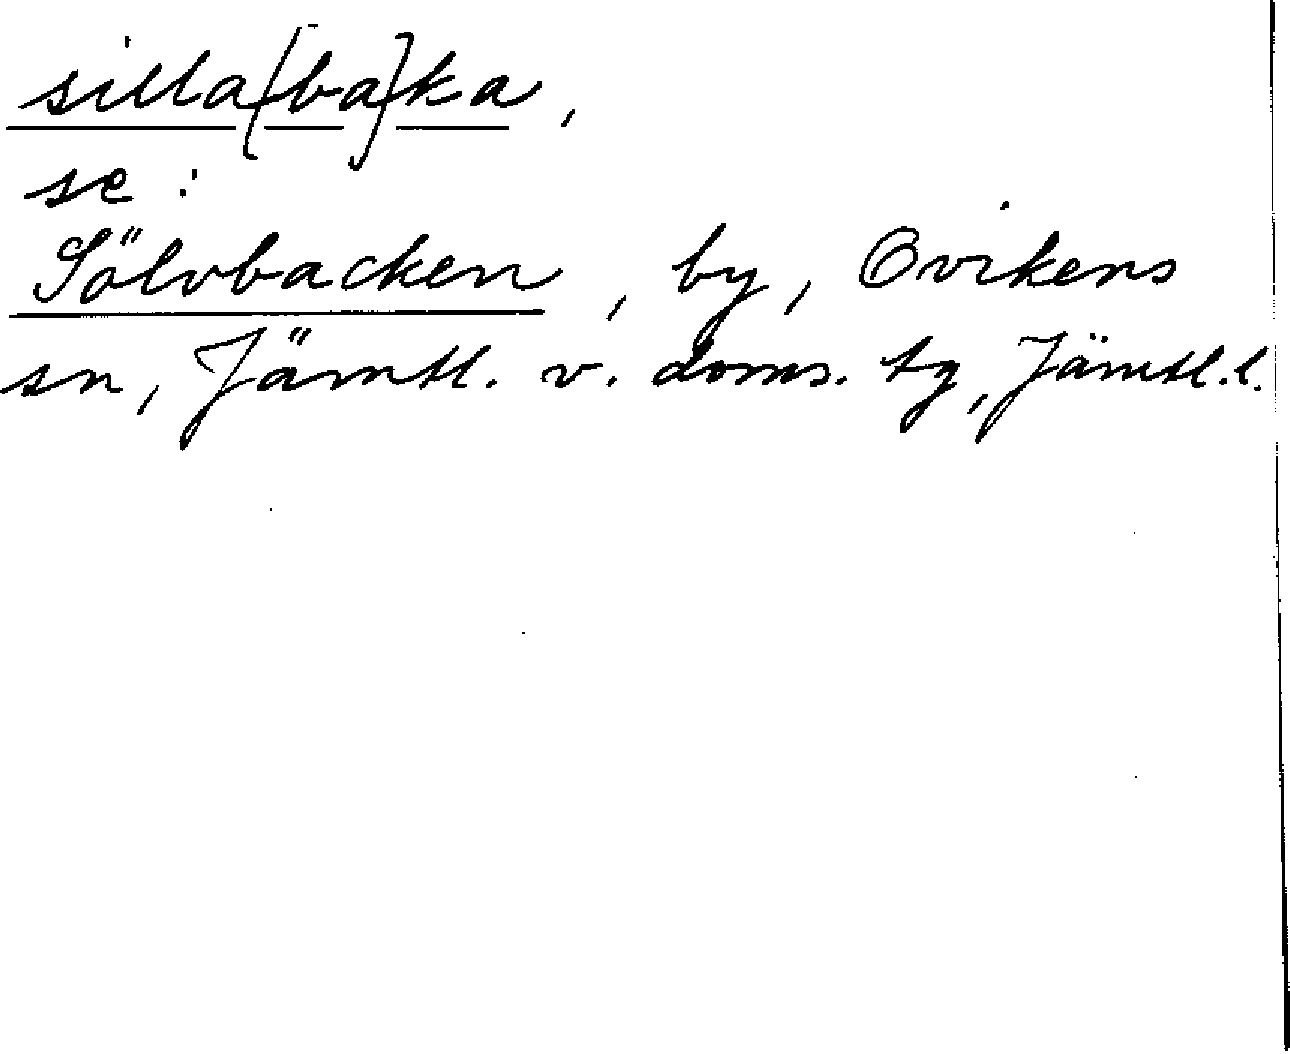 silla[ba]ka,
se:
Sölvbacken, by, Ovikens
sn, Jämtl. v. doms. tg, Jämtl.l.